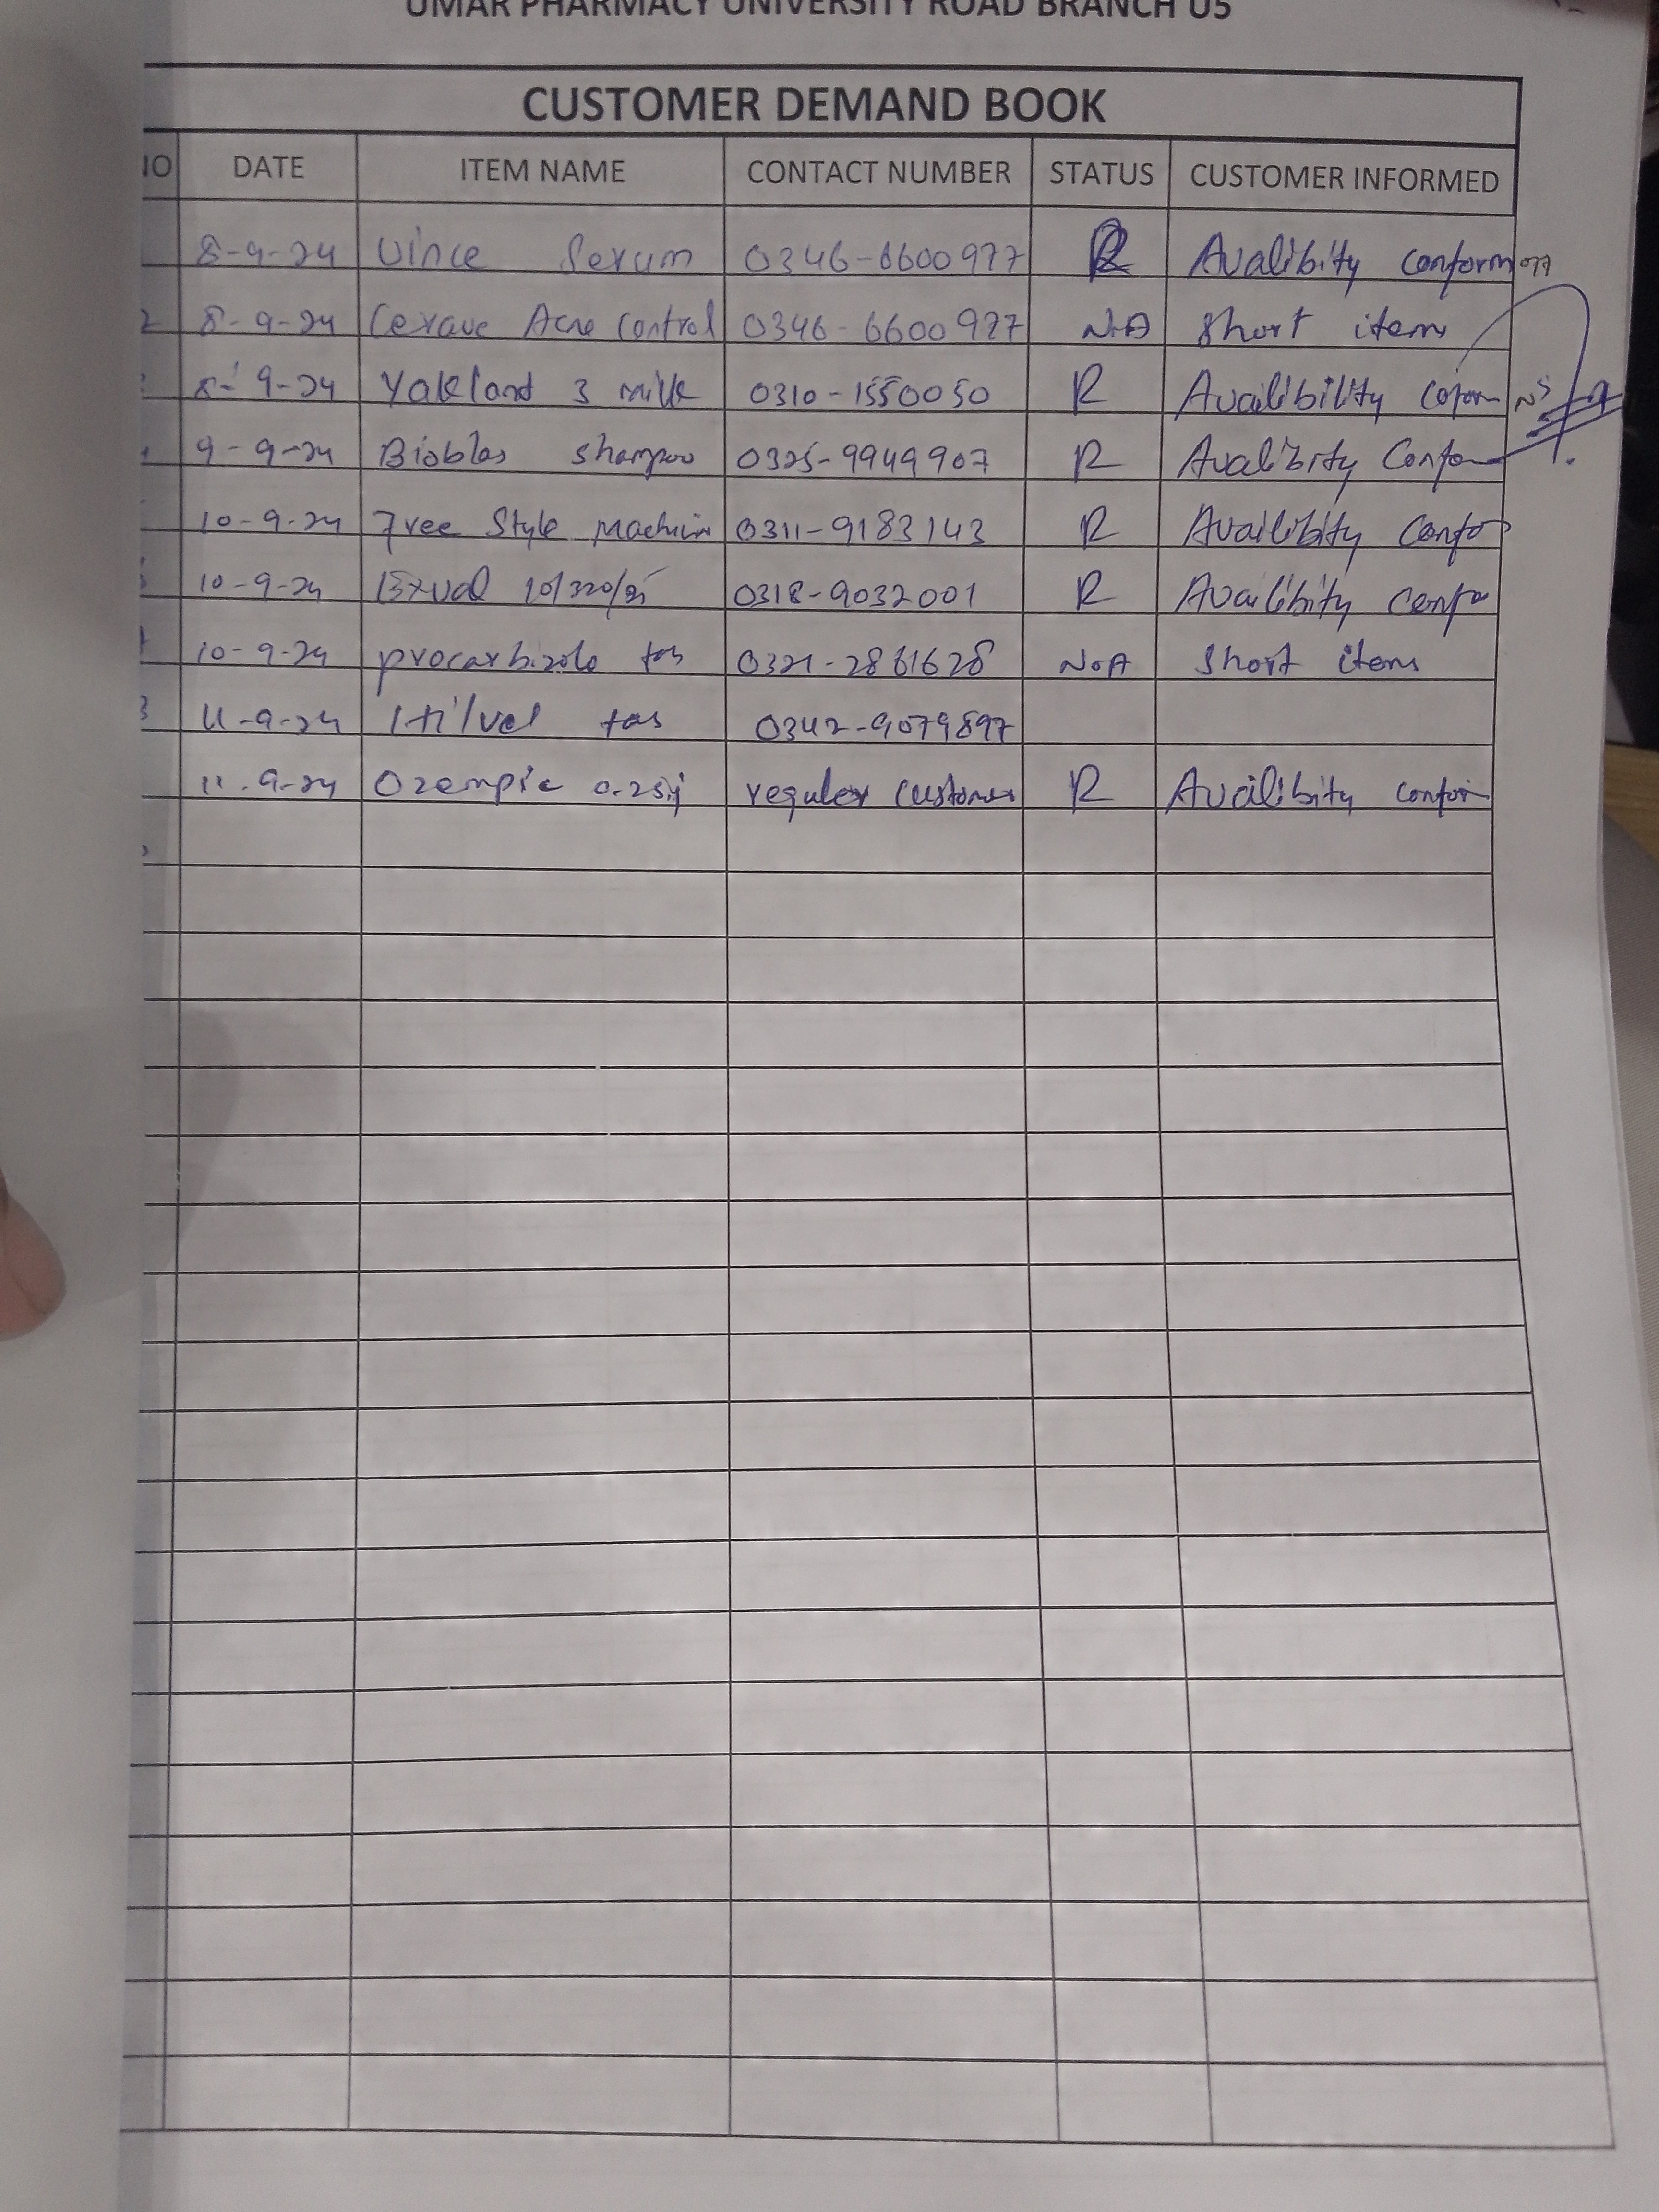 UMAR PHARMACY UNIVERSITY ROAD BRANCH U5
CUSTOMER DEMAND BOOK
NO DATE ITEM NAME CONTACT NUMBER STATUS CUSTOMER INFORMED
8-9-24 Vince Serum 0346-6600977 R Avalibity conform
2 8-9-24 Cerave Acne Control 0346-6600977 N.A Short item
8-9-24 Yakland 3 milk 0310-1550050 R Availibility
9-9-24 Bioblas shampoo 0325-9949907 R Avalibity Confo
10-9-24 Free Style machin 0311-9183143 R Availibity Confo
10-9-24 0318-9032001 R Availibity confo
10-9-24 procarbizole tab 0321-2861628 N.A Short item
11-9-24 tab 0342-9079897
11.9-24 Ozempic 0.25 regular customer R Availibity confor